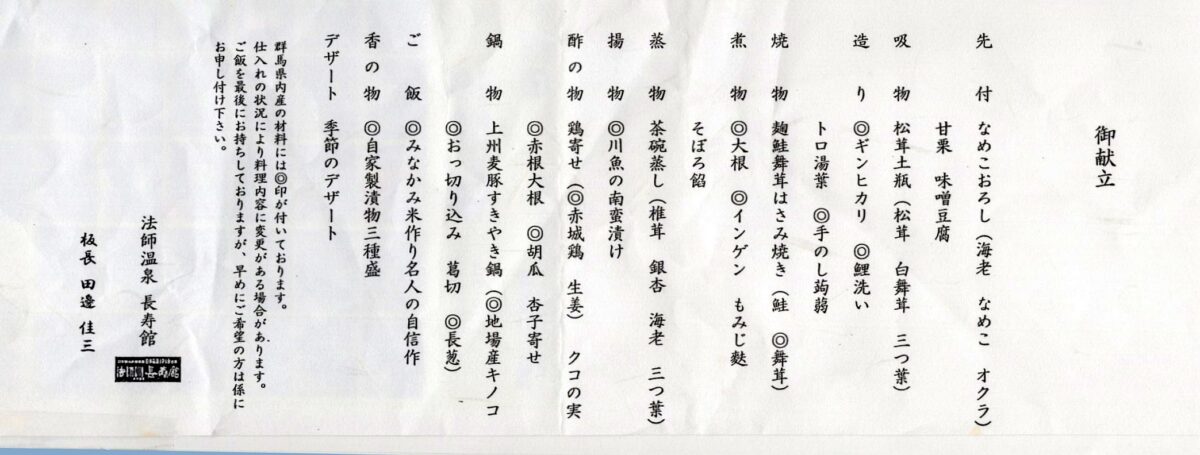 御献立
先付 なめこおろし(海老 なめこ オクラ)
甘栗 味噌豆腐
吸物 松茸土瓶(松茸 白舞茸 三つ葉)
造り ◎ギンヒカリ ◎鯉洗い
トロ湯葉 ◎手のし蒟蒻
焼物 麹鮭舞茸はさみ焼き(鮭 ◎舞茸)
煮物 ◎大根 ◎インゲン もみじ麩
そぼろ餡
蒸物 茶碗蒸し(椎茸 銀杏 海老 三つ葉)
揚物 ◎川魚の南蛮漬け
酢の物 鶏寄せ(◎赤城鶏 生姜) クコの実
◎赤根大根 ◎胡瓜 杏子寄せ
鍋物 上州麦豚すきやき鍋(◎地場産キノコ
◎おっ切り込み 葛切 ◎長葱)
ご飯 ◎みなかみ米作り名人の自信作
香の物 ◎自家製漬物三種盛
デザート 季節のデザート
群馬県内産の材料には◎印が付いております。
仕入れの状況により料理内容に変更がある場合があります。
ご飯を最後にお持ちしておりますが、早めにご希望の方は係に
お申し付け下さい。
法師温泉 長寿館
板長 田邉 佳三